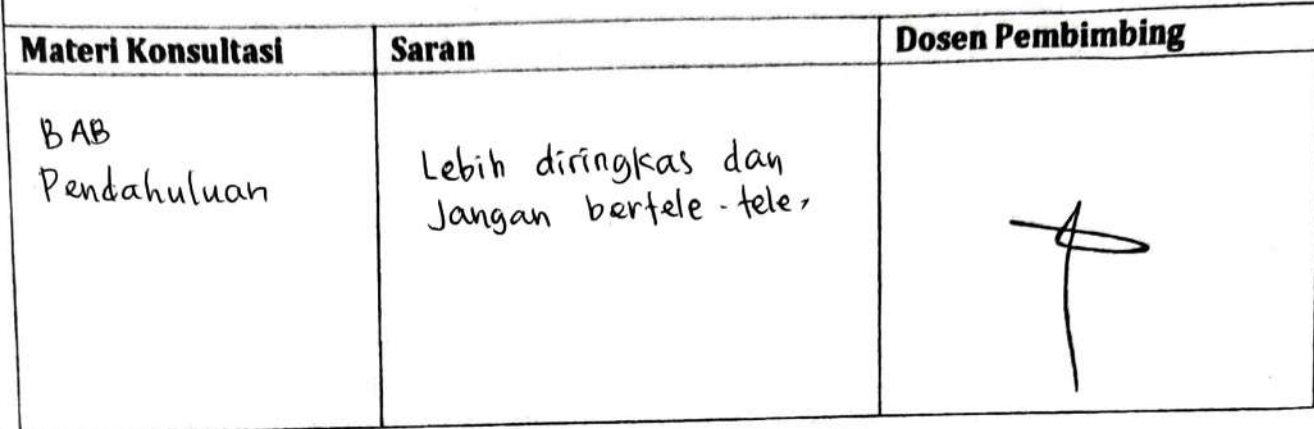 Materi Konsultasi
Saran
Dosen Pembimbing
BAB
Pendahuluan
Lebih diringkas dan
Jangan bertele-tele,